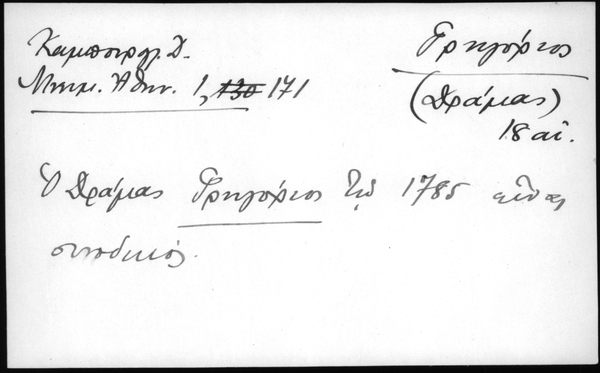 Καμπούρογ. Δ.
Μνημ. Ἀθην. 1, 130 171
Γρηγόριος
(Δράμας)
18 αἰ.
Ὁ Δράμας Γρηγόριος τῷ 1785 εἶναι
συνοδικός.